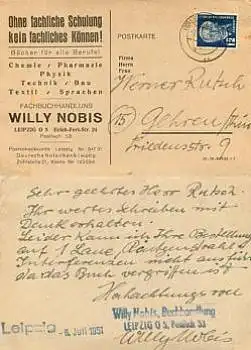 Ohne fachliche Schulung
kein fachliches Können!
Bücher für alle Berufe!
Chemie / Pharmazie
Physik
Technik / Bau
Textil / Sprachen
FACHBUCHHANDLUNG
WILLY NOBIS
LEIPZIG O 5
Postfach 53
Postscheckkonto Leipzig
Deutsche Notenbank Leipzig
POSTKARTE
Firma
Herrn
Frau
Werner Rutsch
(15) Gehren/Thür
Friedensstr. 9
Sehr geehrter Herr Rutsch.
Ihr wertes Schreiben mit
Dank erhalten.
Leider kann ich Ihre Bestellung
auf 1 Laue,
Interferenzen nicht
da das Buch vergriffen ist
Hochachtungsvoll
Willy Nobis, Buchhandlung
LEIPZIG O 5, Postfach 53
Leipzig 6. Juli 1951
Willy Nobis